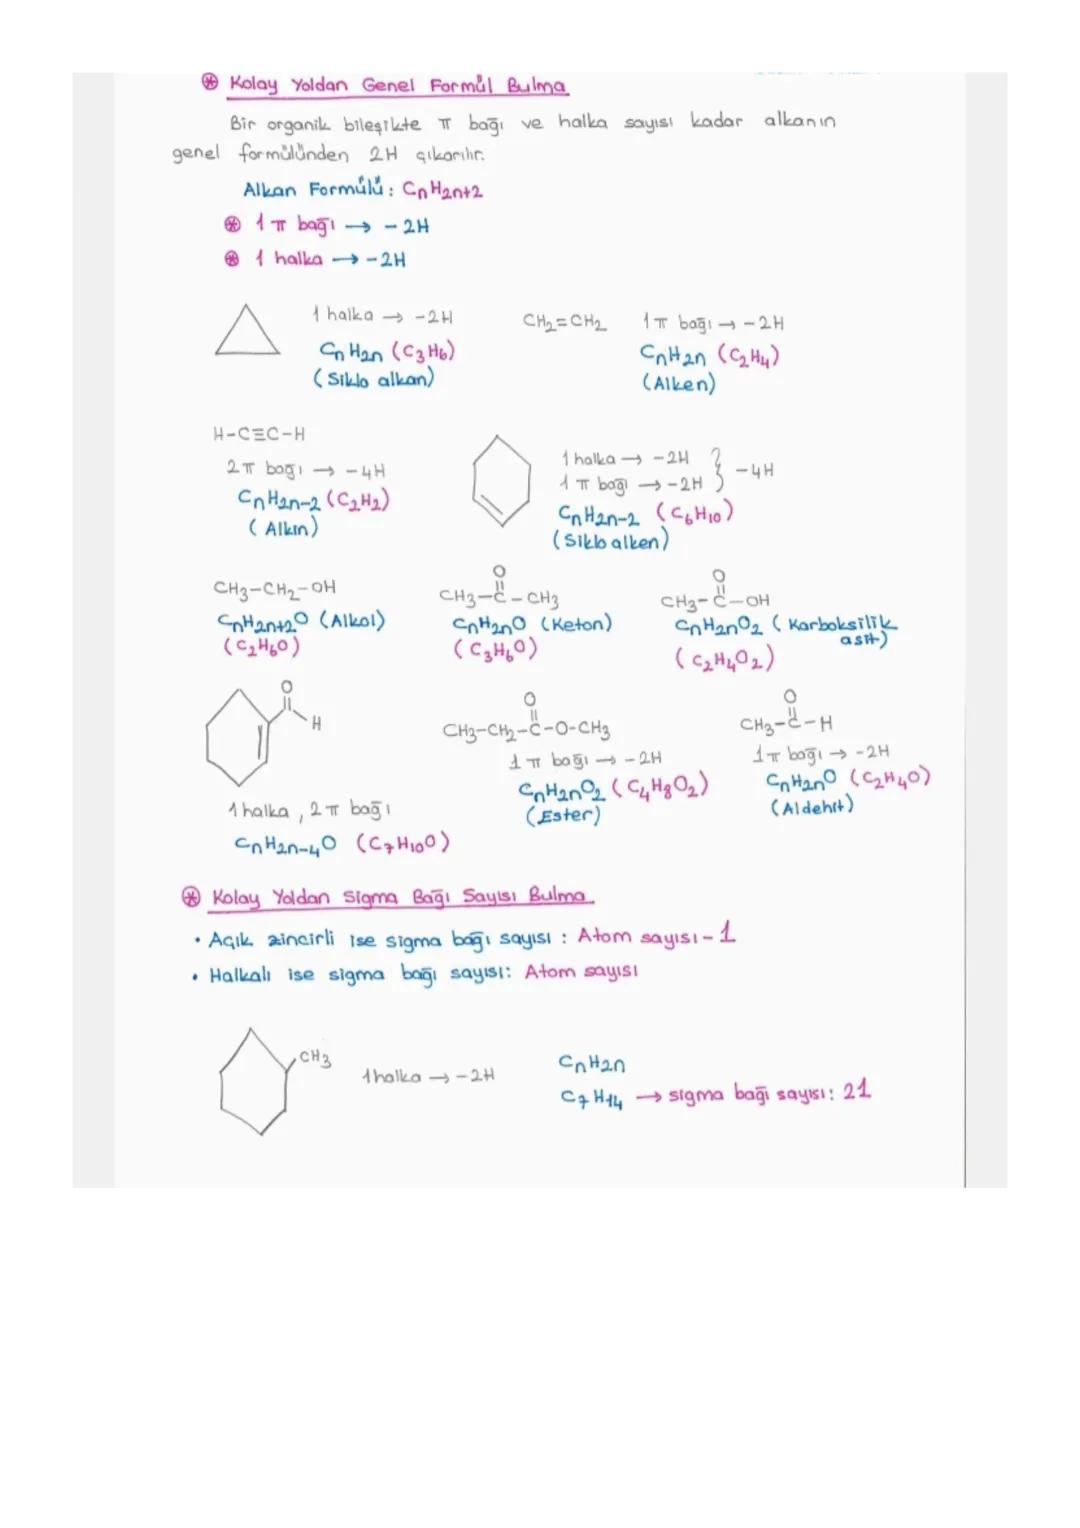 ⊛ Kolay Yoldan Genel Formül Bulma
Bir organik bileşikte π bağı ve halka sayısı kadar alkanın
genel formülünden 2H çıkarılır.
Alkan Formülü: CnH2n+2
⊛ 1 π bağı → -2H
⊛ 1 halka → -2H
1 halka → -2H
CnH2n (C3H6)
(Siklo alkan)
CH2=CH2 1 π bağı → -2H
CnH2n (C2H4)
(Alken)
H-C≡C-H
2 π bağı → -4H
CnH2n-2 (C2H2)
(Alkin)
1 halka → -2H
1 π bağı → -2H } -4H
CnH2n-2 (C6H10)
(Siklo alken)
CH3-CH2-OH
CnH2n+2O (Alkol)
(C2H6O)
O
CH3-C-CH3
CnH2nO (Keton)
(C3H6O)
O
CH3-C-OH
CnH2nO2 (Karboksilik
asit)
(C2H4O2)
O
H
1 halka, 2 π bağı
CnH2n-4O (C7H10O)
O
CH3-CH2-C-O-CH3
1 π bağı → -2H
CnH2nO2 (C4H8O2)
(Ester)
O
CH3-C-H
1 π bağı → -2H
CnH2nO (C2H4O)
(Aldehit)
⊛ Kolay Yoldan Sigma Bağı Sayısı Bulma
• Açık zincirli ise sigma bağı sayısı : Atom sayısı - 1
• Halkalı ise sigma bağı sayısı: Atom sayısı
CH3
1 halka → -2H
CnH2n
C7H14 → sigma bağı sayısı: 21